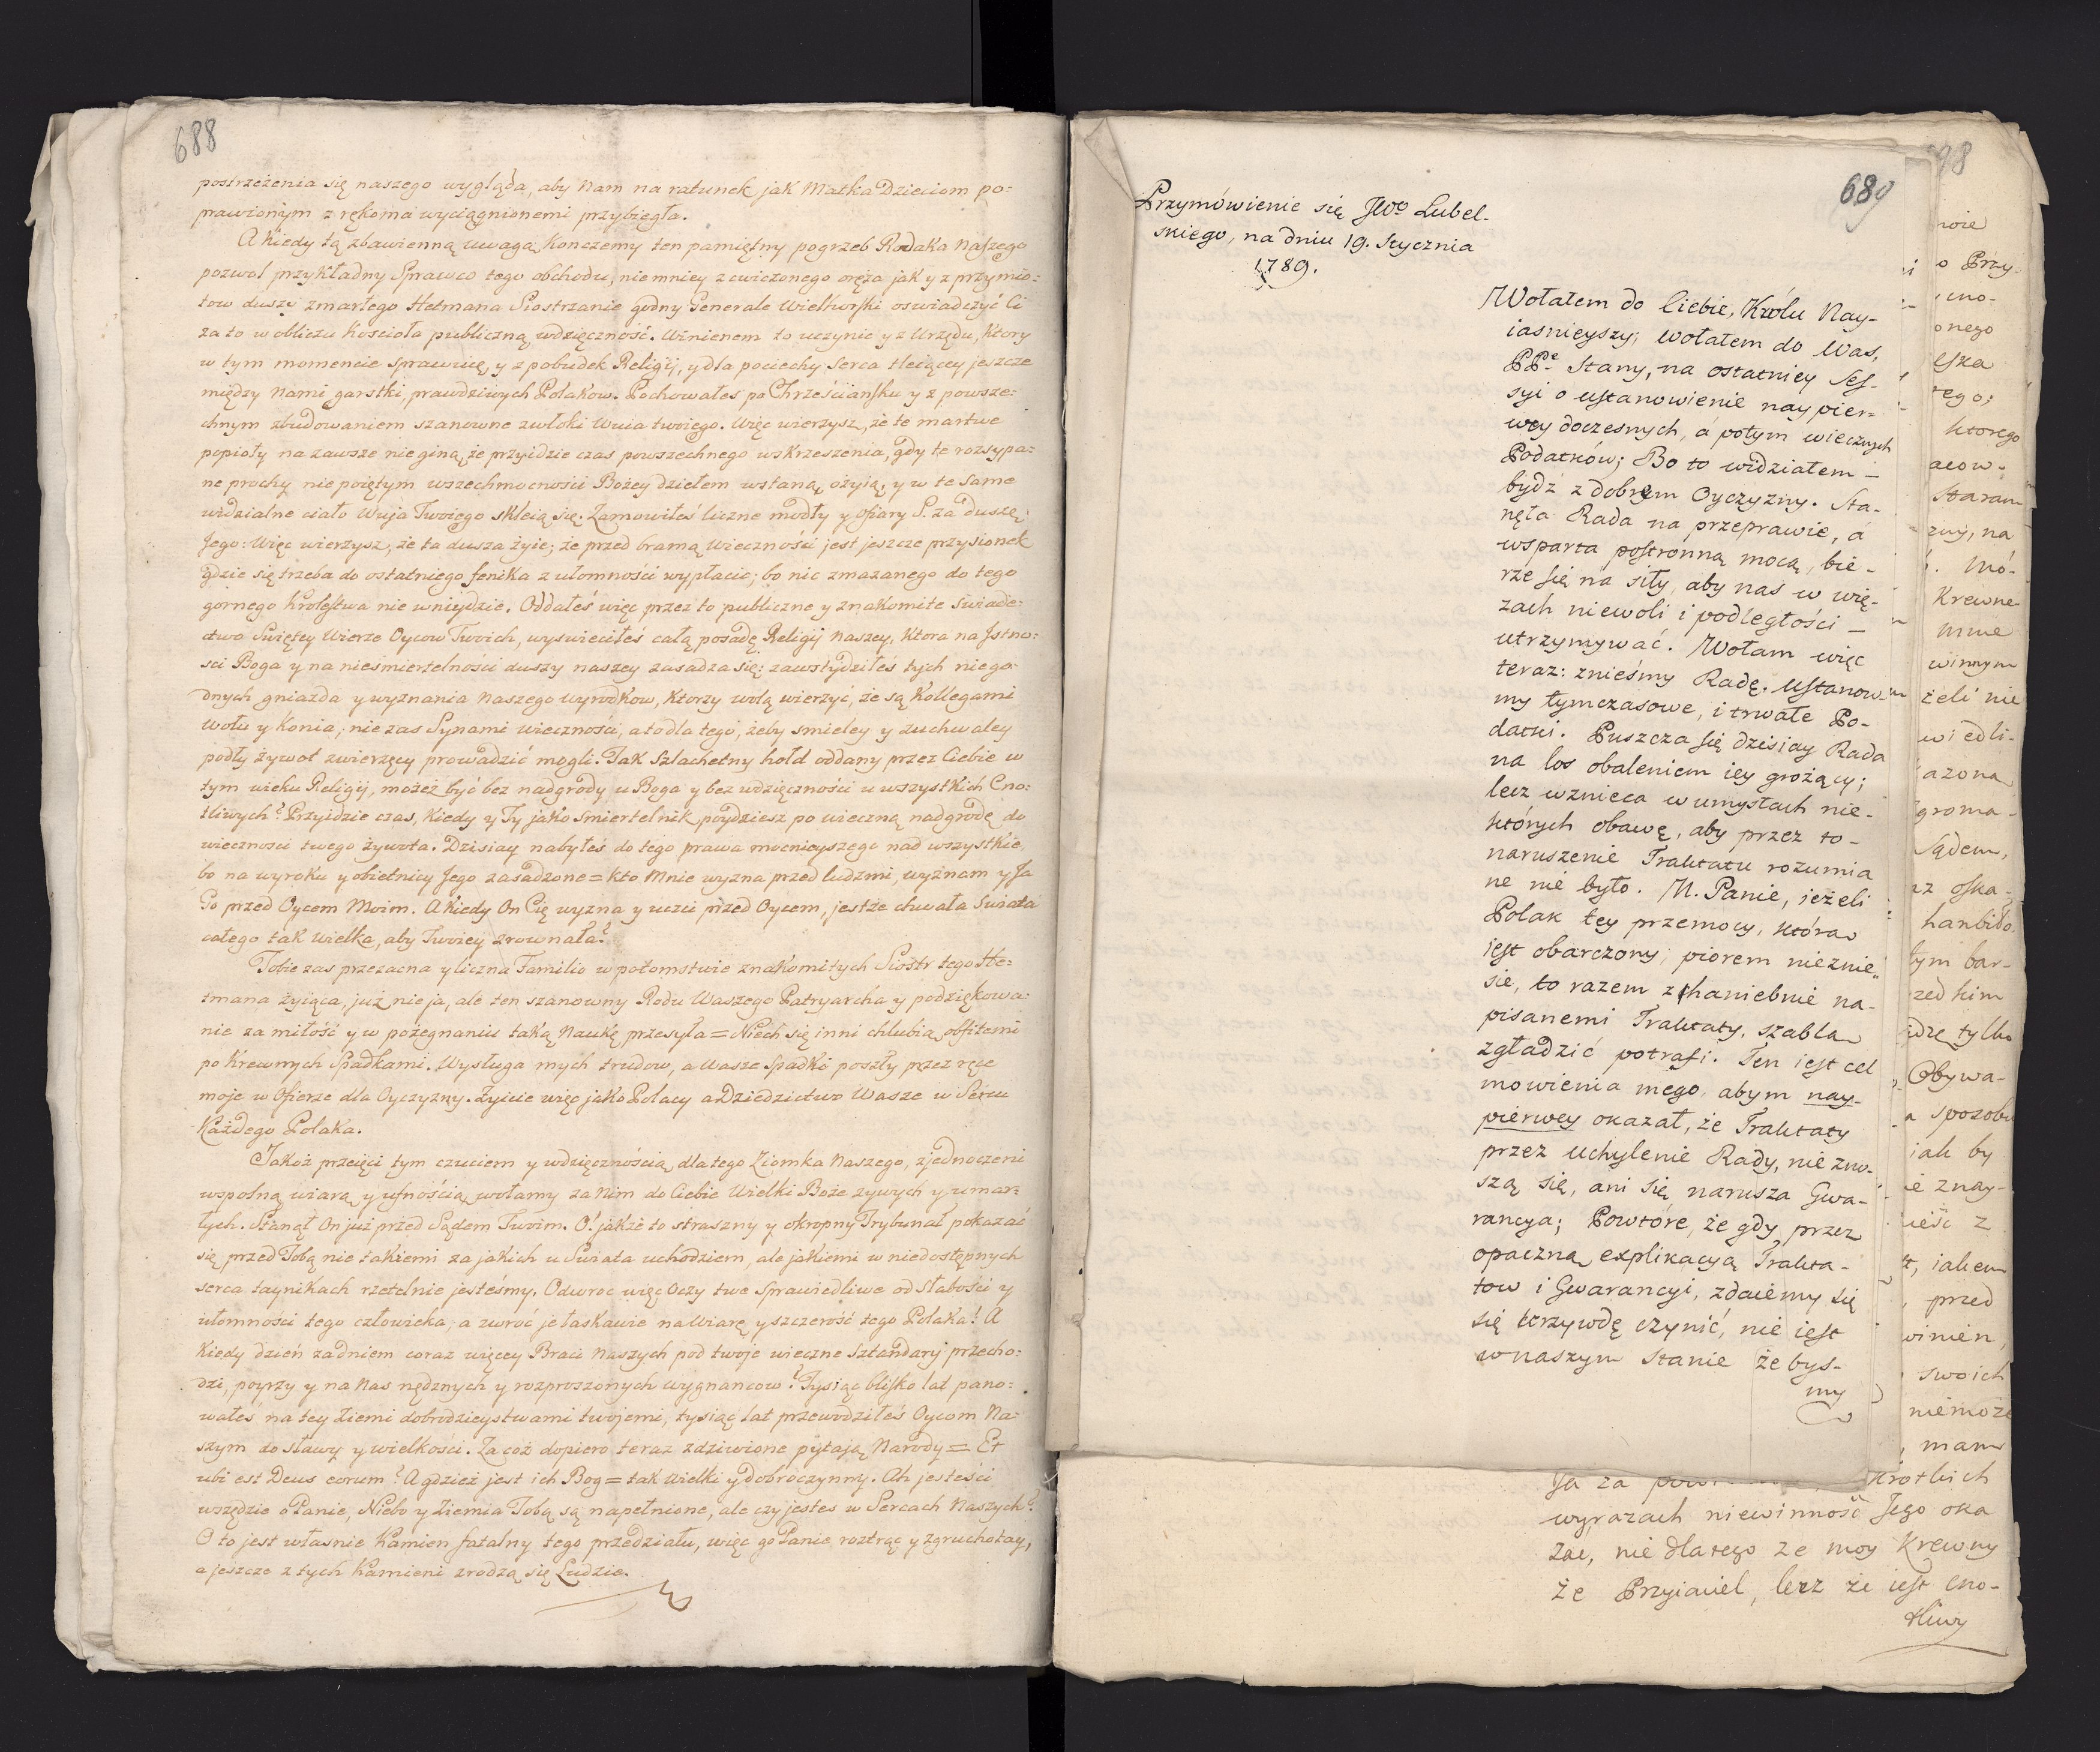 688
postrzeżenia się naszego wygląda, aby Nam na ratunek jak Matka Dzieciom po=
prawionym z rękoma wyciągnionemi przybiegła.
A kiedy tą zbawienną uwagą Konczemy ten pamiętny pogrzeb Rodaka Naszego
pozwol przykładny Sprawco tego obchodu, niemniey z cwiczonego oręża jak y z przymio=
tow duszy zmarłego Hetmana Siostrzanie godny Generale Wielhorski oswiadczyć Ci
za to w obliczu Kosciola publiczną wdzięczność. Winienem to uczynic y z Urzędu, ktory
w tym momencie sprawuię, y z pobudek Religij, y dla pociechy Serca tleiącey jeszcze
między Nami garstki, prawdziwych Polakow. Pochowałes po Chrześciańsku y z powsze=
chnym zbudowaniem szanowne zwłoki Wuia twoiego. Więc wierzysz, że te martwe
popioły na zawsze nie giną, że przyidzie czas powszechnego wskrzeszenia, gdy te rozsypa=
ne prochy niepoiętym wszechmocnosci Bożey dziełem wstaną, ożyią, y w te same
widzialne ciało Wuja Twoiego skleią się. Zamowiłeś liczne modły y ofiary S. za duszę
Jego: Więc wierzysz, że ta dusza żyie; że przed bramą Wieczności jest jeszcze przysionek
gdzie się trzeba do ostatniego fenika z ułomności wypłacic; bo nic zmazanego do tego
gornego Krolestwa nie wniydzie. Oddałeś więc przez to publiczne y znakomite Swiade=
ctwo Swiętey Wierze Oycow Twoich, wyswieciłeś całą posadę Religij Naszey, ktora na Jstno=
sci Boga y na nieśmiertelności duszy naszey zasadza się: zawstydziłeś tych niego=
dnych gniazda y wyznania Naszego Wyrodkow, ktorzy wolą wierzyć, że są Kollegami
Wołu y Konia, nie zas Synami wieczności, a to dla tego, żeby smieley y zuchwaley
podły żywot zwierzęcy prowadzić mogli. Tak Szlachetny hołd oddany przez Ciebie w
tym wieku Religij, możeż być bez nadgrody u Boga y bez wdzięczności u wszystkich Cno=
tliwych? Przyidzie czas, kiedy y Ty jako smiertelnik poydziesz po wieczną nadgrodę do
wiecznosci twego żywota. Dzisiay nabyłeś do tego prawa mocnieyszego nad wszystkie,
bo na wyroku y obietnicy Jego zasadzone = Kto Mnie wyzna przed ludzmi, wyznam y Ja
Go przed Oycem Moim. A kiedy On Cię wyzna y uczci przed Oycem, jestże chwała Swiata
całego tak wielka, aby Twoiey zrownała?
Tobie zas przezacna y liczna Familio w potomstwie znakomitych Siostr tego He=
tmana żyiąca, już nie ja, ale ten szanowny Rodu Waszego Patryarcha y podziękowa=
nie za miłość y w pożegnaniu taką Naukę przesyła = Niech się inni chlubią obfitemi
po Krewnych Spadkami. Wysługa mych trudow, a Wasze Spadki poszły przez ręce
moje w Ofierze dla Oyczyzny. Zyicie więc jako Polacy a Dziedzictwo Wasze w Sercu
Każdego Polaka.
Jakoż przeięci tym czuciem y wdzięcznością dla tego Ziomka Naszego, zjednoczeni
wspolną wiarą y ufnością wołamy za Nim do Ciebie Wielki Boże zywych y umar=
łych. Stanął On już przed Sądem Twoim. O! jakże to straszny y okropny Trybunał pokazać
się przed Tobą nie takiemi za jakich u Swiata uchodziem, ale jakiemi w niedostępnych
serca taynikach rzetelnie jesteśmy. Odwroc więc Oczy twe Sprawiedliwe od słabości y
ułomności tego człowieka, a zwróć je łaskawie na Wiarę y szczerość tego Polaka! A
kiedy dzień zadniem coraz więcey Braci Naszych pod twoje wieczne Sztandary przecho=
dzi, poyrzy y na Nas nędznych y rozproszonych wygnancow? Tysiąc blisko lat pano=
wałeś na tey Ziemi dobrodzieystwami twojemi, tysiąc lat przewodziłeś Oycom Na=
szym do sławy y wielkości. Za coż dopiero teraz zdziwione pytają Narody = Et
ubi est Deus eorum? A gdzież jest ich Bog = tak Wielki y dobroczynny. Ah jesteści
wszędzie o Panie, Niebo y Ziemia Tobą są napełnione, ale czy jestes w Sercach Naszych?
O to jest własnie Kamien fatalny tego przedziału, więc go Panie roztrąć y zgruchotay,
a jeszcze z tych kamieni zrodzą się Ludzie.
689
Przymówienie się JWo Lubel-
skiego, na dniu 19. Stycznia
1789.
Wołałem do Ciebie, Królu Nay-
iasnieyszy; wołałem do Was,
PPe Stany, na ostatniey Ses-
syi o ustanowienie naypier-
wey doczesnych, a potym wiecznych
Podatków; Bo to widziałem –
bydź z dobrem Oyczyzny. Sta-
nęła Rada na przeprawie, a
wsparta postronną mocą, bie-
rze się na siły, aby nas w wię-
zach niewoli i podległości –
utrzymywać. Wołam więc
teraz: znieśmy Radę. Ustanow-
my tymczasowe, i trwałe Po-
datki. Puszcza się dzisiay Rada
na los obaleniem iey grożący;
lecz wznieca w umysłach nie-
których obawę, aby przez to –
naruszenie Traktatu rozumia
ne nie było. M. Panie, ieżeli
Polak tey przemocy, którą
iest obarczony, piorem nieznie
sie, to razem z haniebnie na-
pisanemi Traktaty, szablą
zgładzić potrafi. Ten iest cel
mowienia mego, abym nay-
pierwey okazał, że Traktaty
przez uchylenie Rady, nie zno-
szą się, ani się narusza Gwa-
rancya; Powtóre, że gdy przez
opaczną explikacyą Trakta-
tow i Gwarancyi, zdaiemy się
się krzywdę czynić, nie iest
w naszym stanie że bys-
my
98
moie
o Przy
cno-
onego
elska
tego;
ktorego
acow-
Staran
zny, na
Mó-
Krewne-
Mnie
winnym
żeli nie
wiedli-
azona
groma-
Sądem,
hanbiło
tym bar-
zed kim
idzę tylko
Obywa-
a sposobu
iak by
znay-
z
iakem
przed
winien,
swoich
niemoże
mam
Ja za krotkich
wyrazach niewinność Jego oka
zac, nie dlatego ze moy Krewny
że Przyiaciel, lecz że iest cno-
tliwy